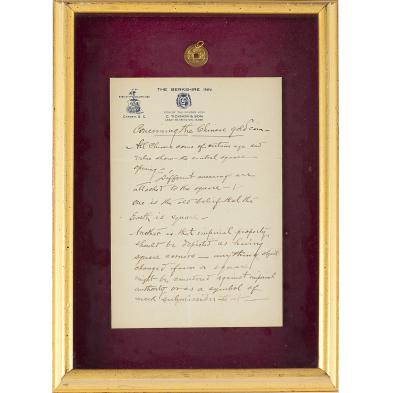 THE BERKSHIRE INN
CAMDEN, S. C.
Concerning the Chinese gold coin —
All Chinese coins of certain age and
value show the central square
opening —
Different meanings are
attached to the square — 1
one is the old belief that the
Earth is square —
Another is that imperial property
should be depicted as having
square corners — anything
changed from a square
might be considered against imperial
authority or as a symbol of